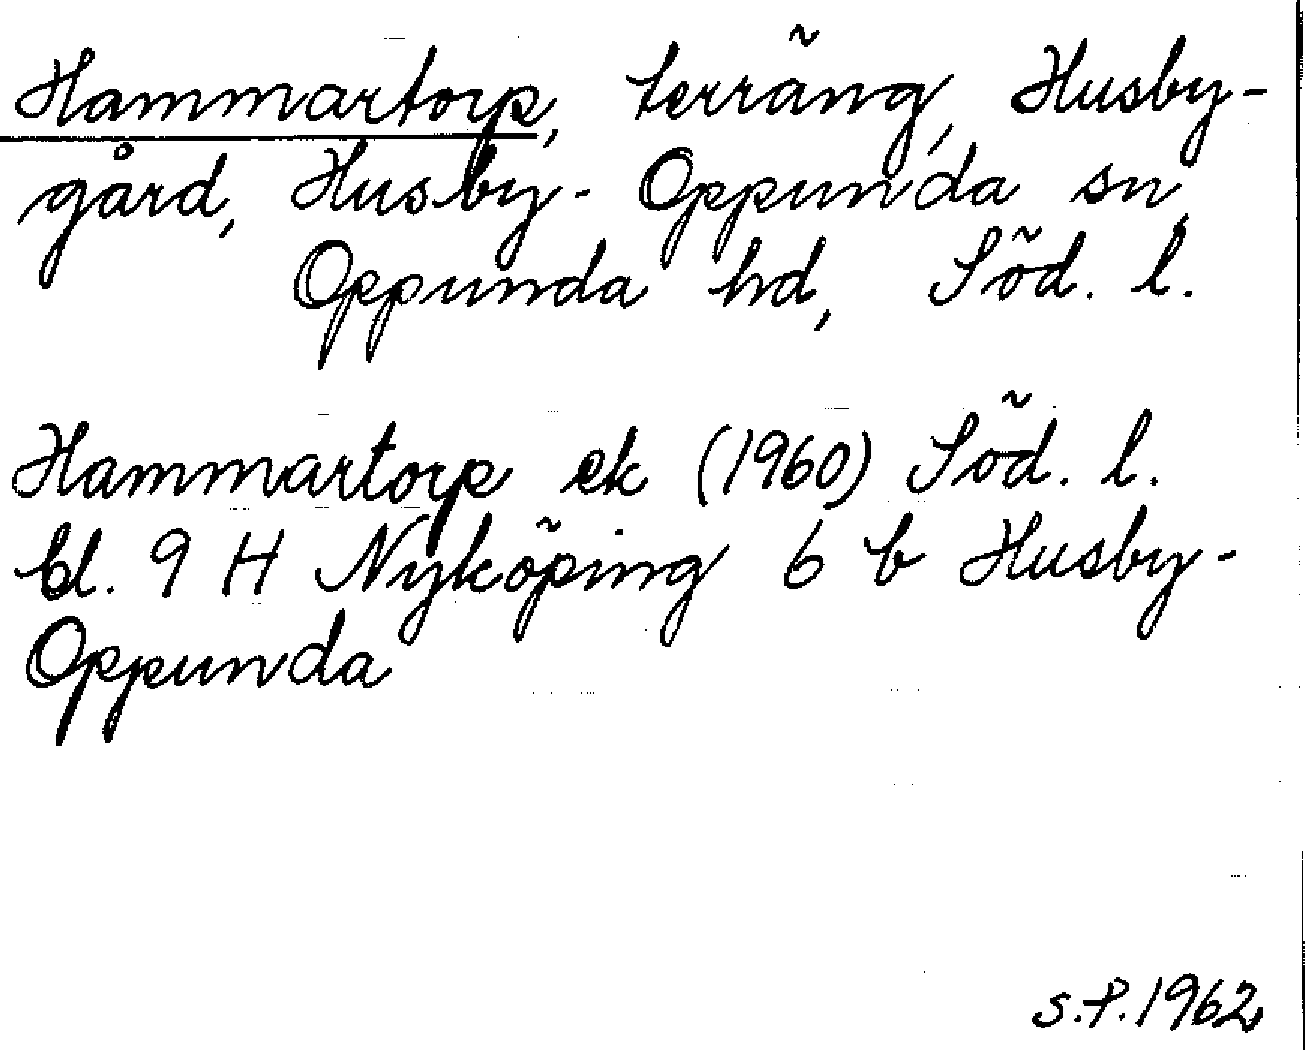 Hammartorp, terräng, Husby-
gård, Husby-Oppunda sn,
Oppunda hd, Söd. l.
Hammartorp ek (1960) Söd. l.
bl. 9 H Nyköping 6 b Husby-
Oppunda
S.P. 1962